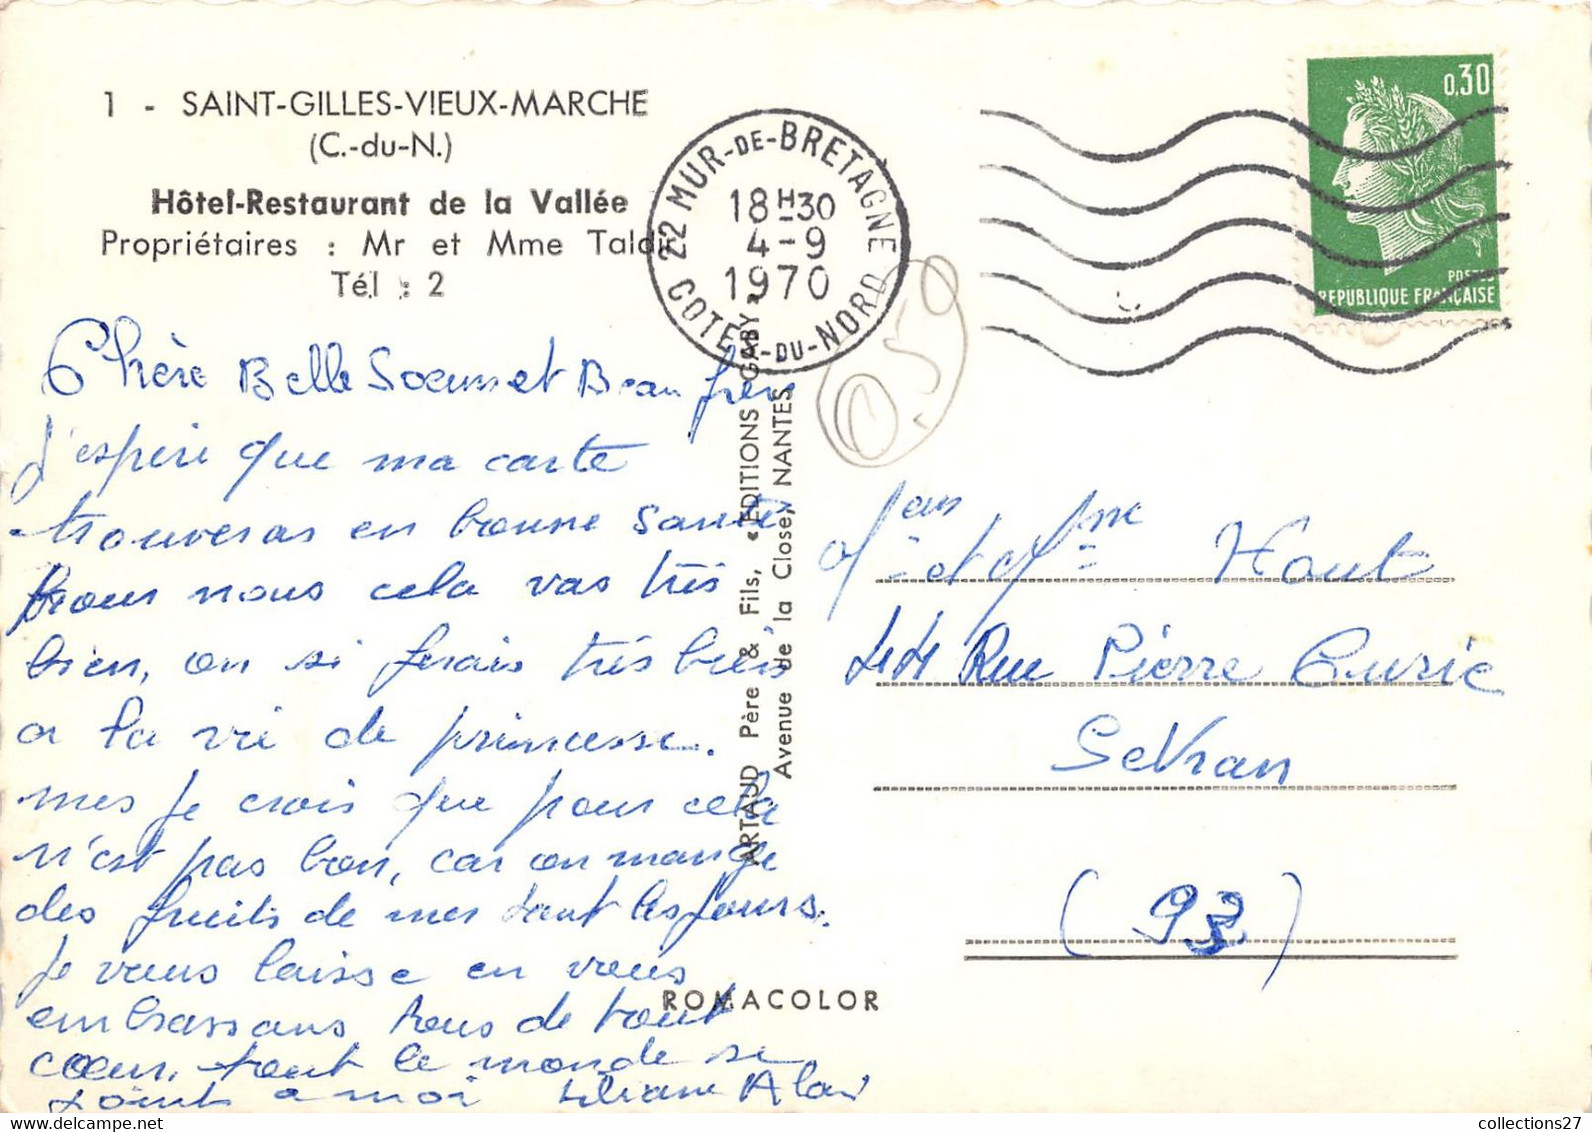 1 - SAINT-GILLES-VIEUX-MARCHE
(C.-du-N.)
Hôtel-Restaurant de la Vallée
Propriétaires : Mr et Mme Taldir
Tél : 2
22 MUR-DE-BRETAGNE
18H30
4-9
1970
COTES-DU-NORD
0,30
POSTES
REPUBLIQUE FRANÇAISE
059
Chère Belle Soeurs et Beau frère
J'espère que ma carte
trouveras en bonne santé
pour nous cela vas très
bien, on si ferais très bien
a la vie de princesse.
mes je crois que pour cela
n'est pas bon, car on mange
des fruits de mer tout les jours.
Je vous laisse en vous
embrassans tous de tout
cœur, tout le monde se
joint a moi Liliane Alain
ARTAUD Père & Fils, « EDITIONS GABY »
Avenue de la Close, NANTES
ROMACOLOR
et Mme Haut
44 Rue Pierre Curie
Sevran
(93)
collections27